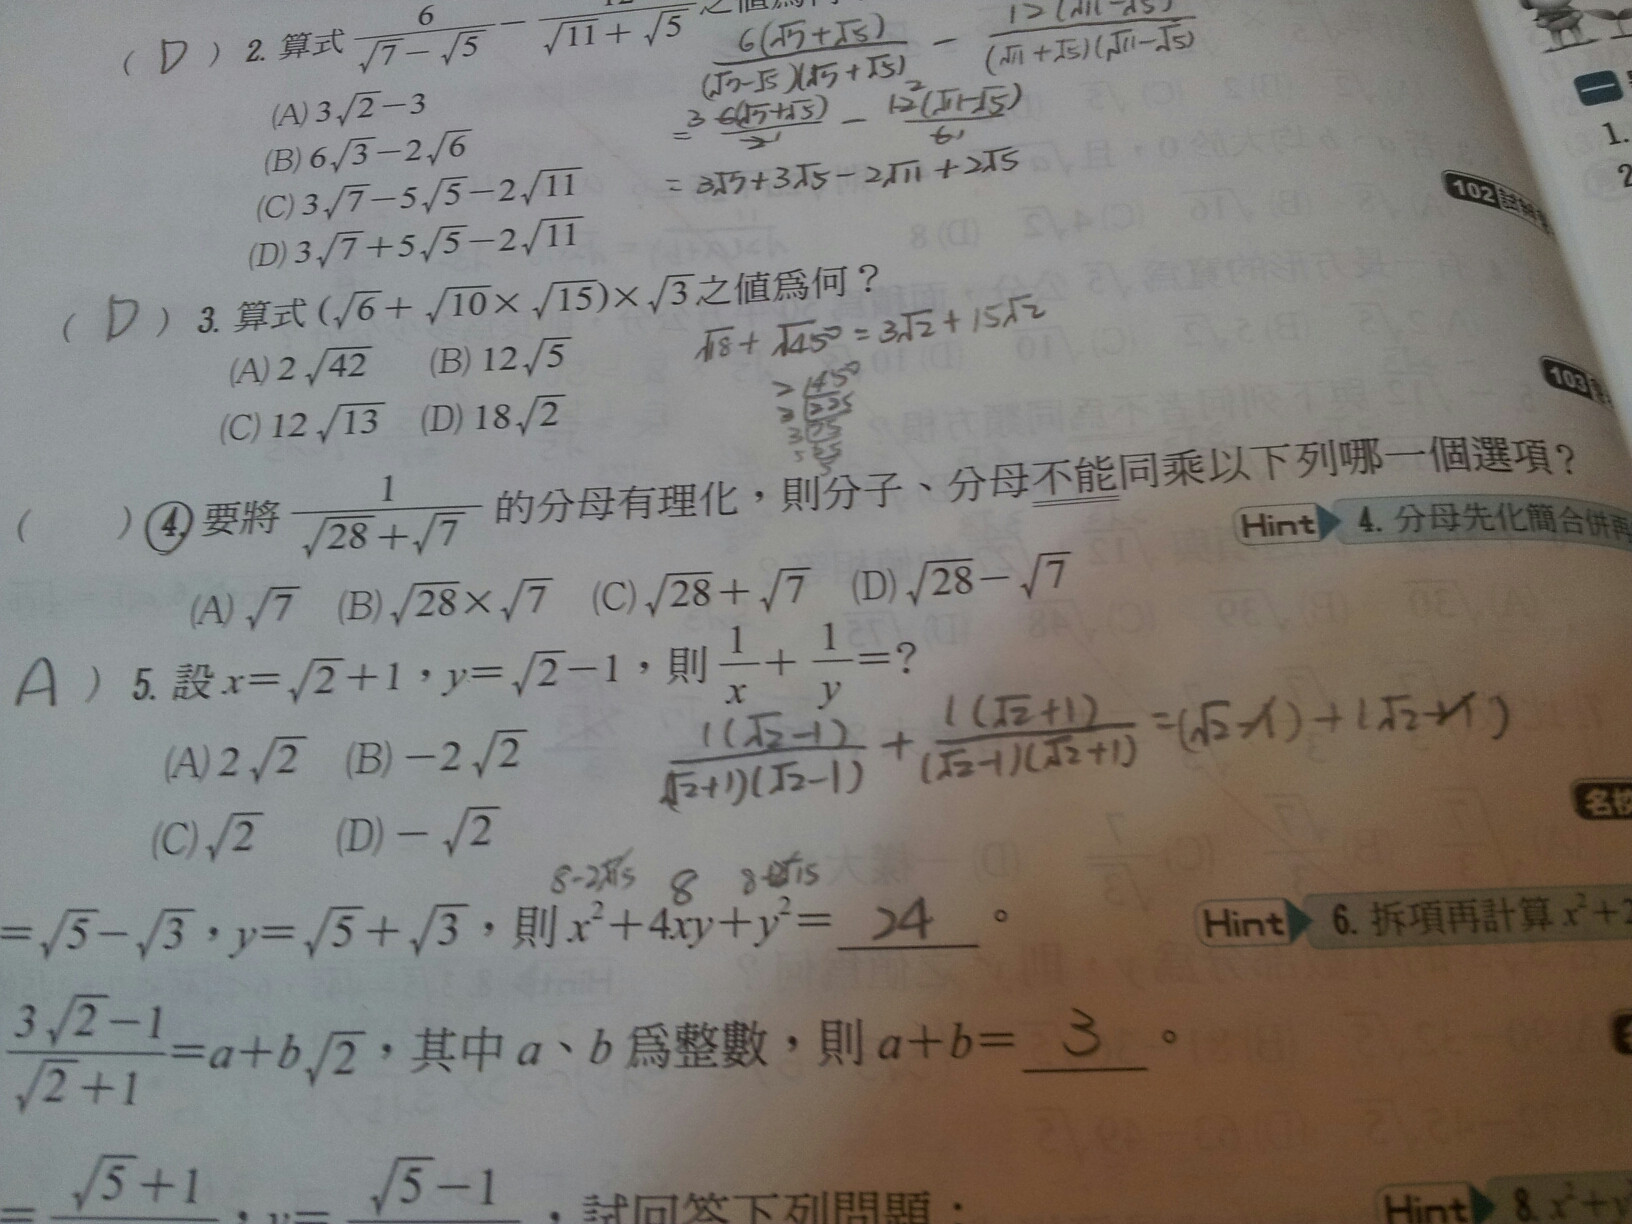 ( D ) 2. 算式 6/(√7−√5) − 12/(√11+√5) 之值為何
6(√7+√5)/((√7−√5)(√7+√5)) − 12(√11−√5)/((√11+√5)(√11−√5))
(A) 3√2−3
= 3 6(√7+√5)/2 1 − 12 2(√11−√5)/6 1
(B) 6√3−2√6
= 3√7+3√5−2√11+2√5
(C) 3√7−5√5−2√11
(D) 3√7+5√5−2√11
( D ) 3. 算式 (√6+√10×√15)×√3之值為何？
√18+√450=3√2+15√2
(A) 2√42 (B) 12√5
(C) 12√13 (D) 18√2
( ) 4. 要將 1/(√28+√7) 的分母有理化，則分子、分母不能同乘以下列哪一個選項？
Hint 4. 分母先化簡合併再
(A) √7 (B) √28×√7 (C) √28+√7 (D) √28−√7
A ) 5. 設 x=√2+1，y=√2−1，則 1/x+1/y=？
1(√2−1)/((√2+1)(√2−1)) + 1(√2+1)/((√2−1)(√2+1)) =(√2−1)+(√2+1)
(A) 2√2 (B) −2√2
(C) √2 (D) −√2
8−2√15 8 8+2√15
=√5−√3，y=√5+√3，則 x²+4xy+y²= 24 。
Hint 6. 拆項再計算 x²+2
(3√2−1)/(√2+1)=a+b√2，其中 a、b 為整數，則 a+b= 3 。
= √5+1 ，y= √5−1 ，試回答下列問題：
Hint 8. x²+y
一
1.
2
102
103
名校